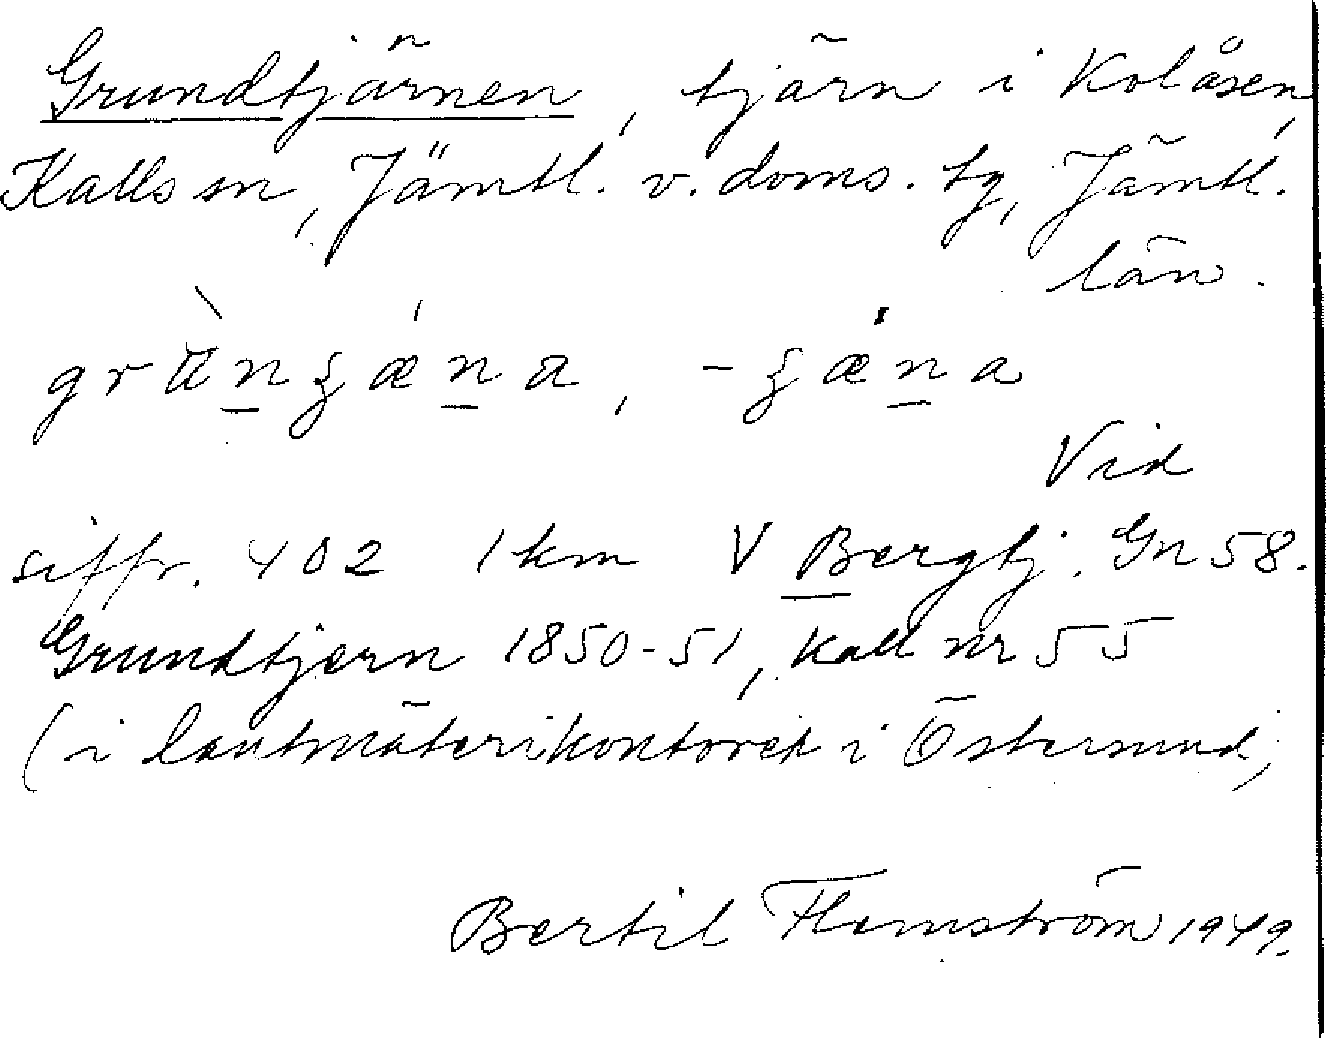 Grundtjärnen, tjärn i Kolåsen,
Kalls sn, Jämtl. v. doms. tg, Jämtl.
län.
Vid
siffr. 402 1 km V Bergtj. Gn 58.
Grundtjern 1850-51, Kall nr 55
(i lantmäterikontoret i Östersund)
Bertil Flemström 1949.